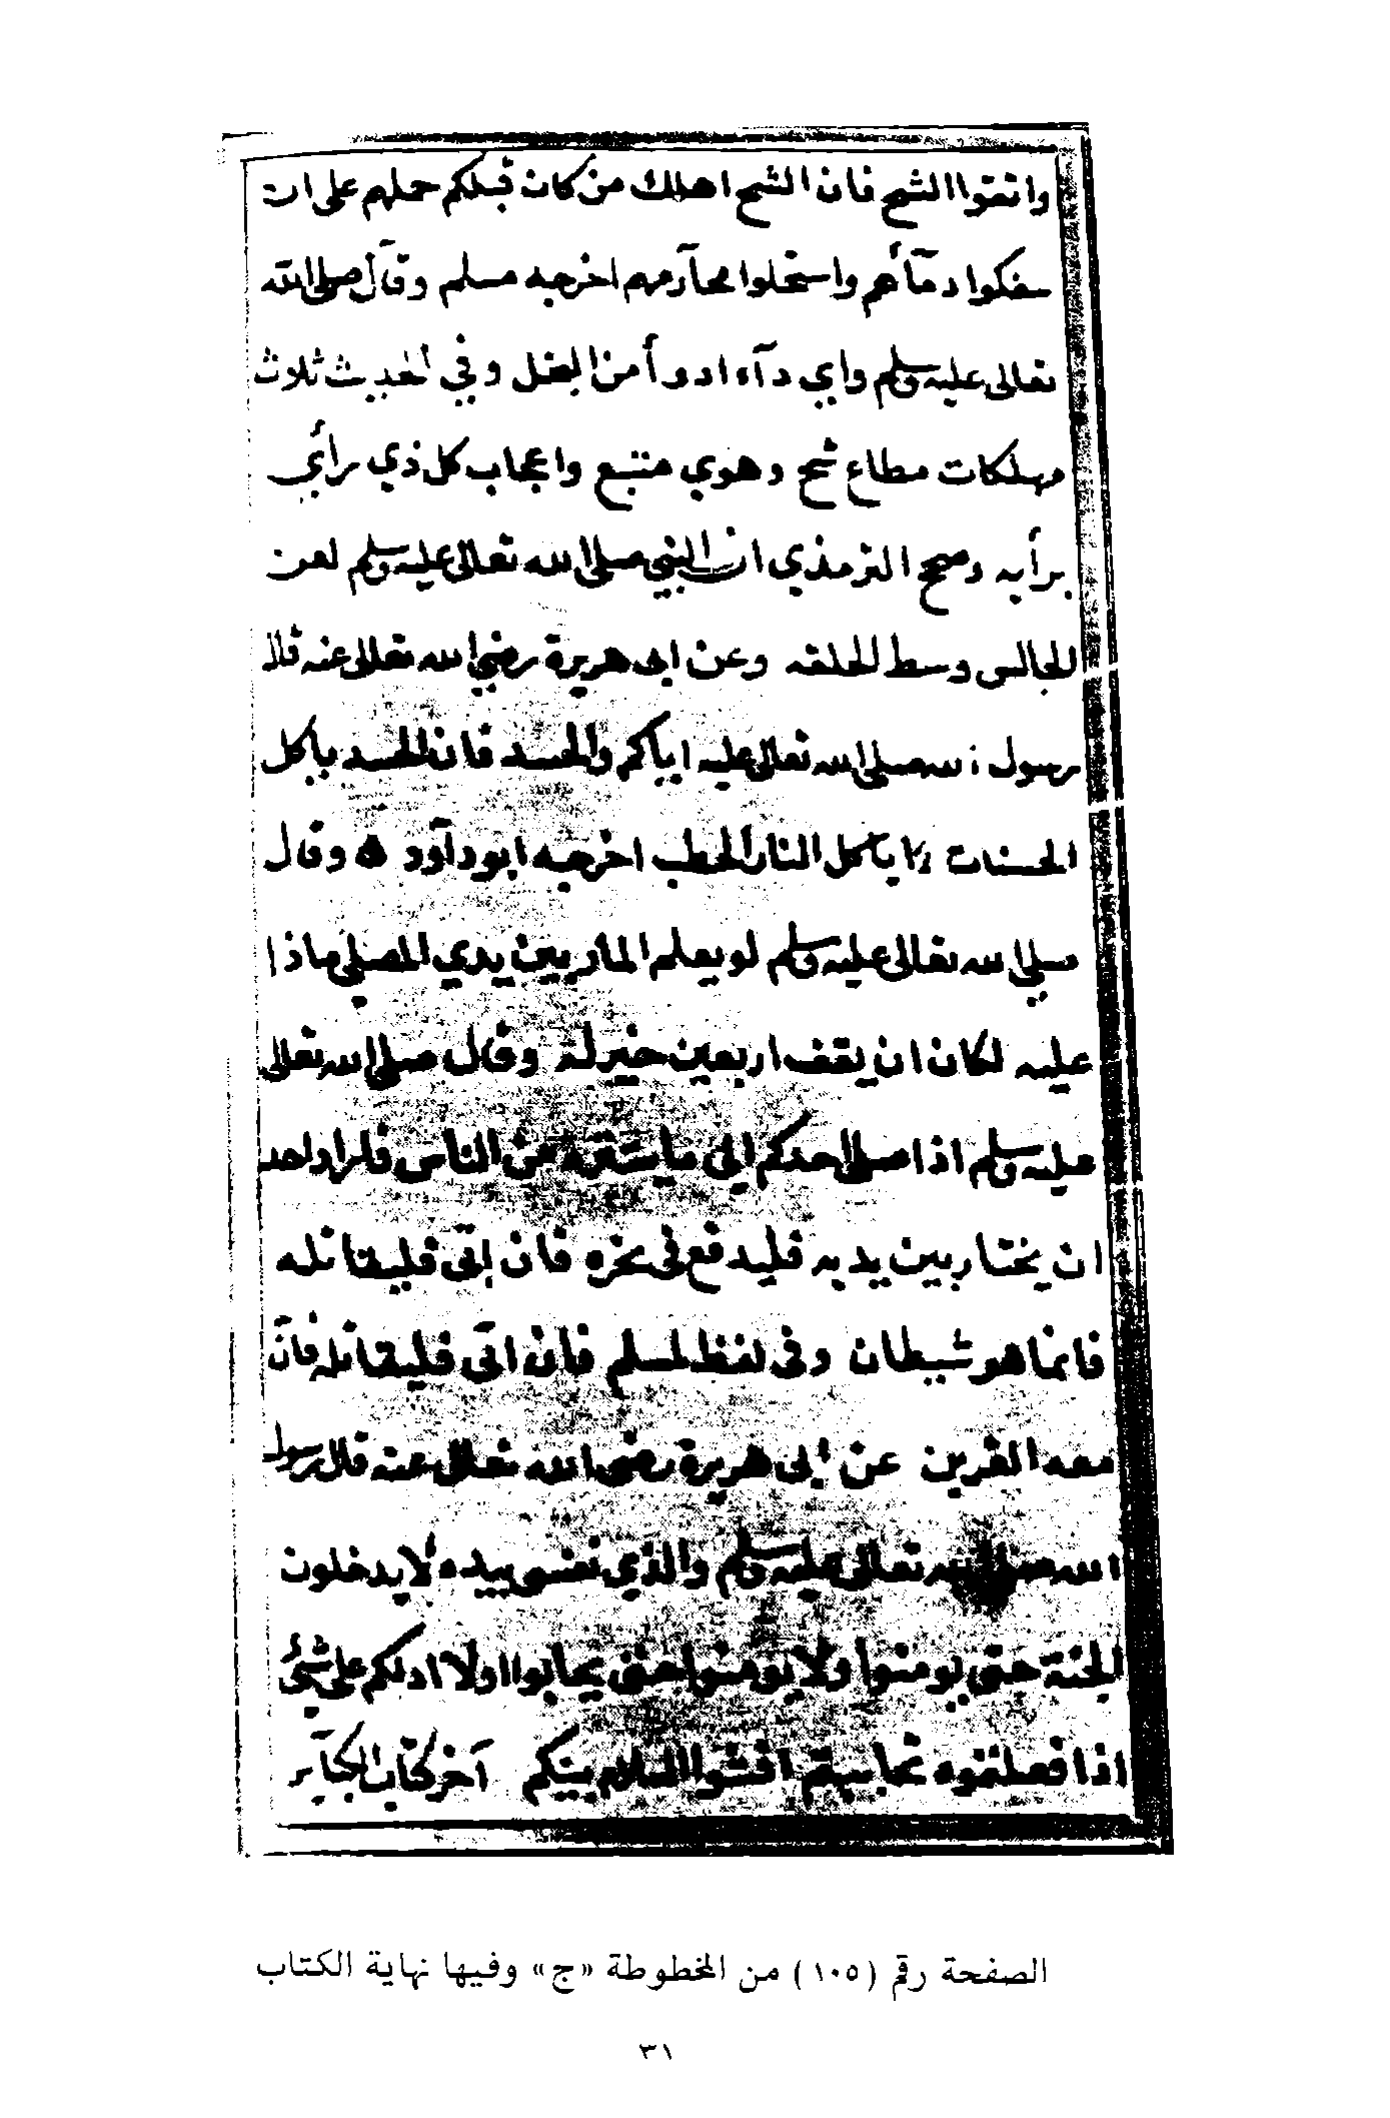 واتقوا الشح فان الشح اهلك من كان قبلكم حملهم على ان
سفكوا دمآءهم واستحلوا محآرمهم اخرجه مسلم وقال صلى الله
تعالى عليه وسلم واي دآء ادوأ من البخل وفي الحديث ثلاث
مهلكات مطاع شح وهوي متبع واعجاب كل ذي رأي
برأيه وصحح الترمذي ان النبي صلى الله تعالى عليه وسلم لعن
الجالس وسط الحلقه وعن ابى هريرة رضي الله تعالى عنه قال
رسول الله صلى الله تعالى عليه اياكم والحسد فان الحسد ياكل
الحسنات كما ياكل النار الحطب اخرجه ابو دآود ه وقال
صلى الله تعالى عليه وسلم لو يعلم المار بين يدي المصلي ماذا
عليه لكان ان يقف اربعين خير له وقال صلى الله تعالى
عليه وسلم اذا صلى احدكم الى ما يستره من الناس فاراد احد
ان يختار بين يديه فليدفع في نحره فان ابى فليقاتله
فانما هو شيطان وفى لفظ لمسلم فان اتى فليقاتله فان
معه القرين عن ابى هريرة رضى الله تعالى عنه قال رسول
الله صلى الله تعالى عليه وسلم والذي نفسي بيده لا يدخلون
الجنة حتى يومنوا ولا يومنوا حتى يحابوا اولا ادلكم على شئ
اذا فعلتموه تحاببتم افشوا السلام بينكم آخر كتاب الكبآير
الصفحة رقم (١٠٥) من المخطوطة «ج» وفيها نهاية الكتاب
٣١